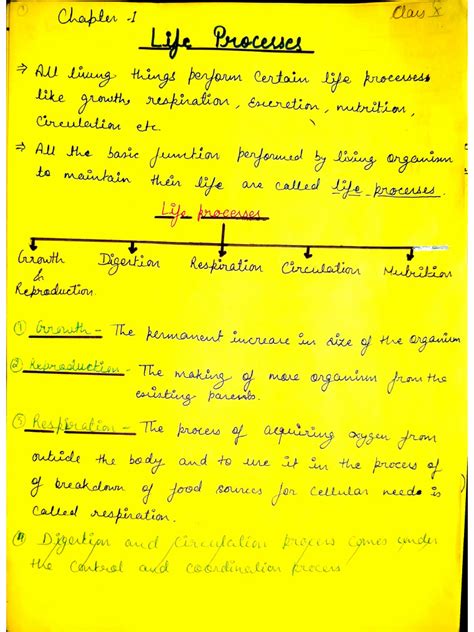 Chapter - 1
Class X
Life Processes
⇒ All living things perform certain life processes
like growth, respiration, Excretion, nutrition,
Circulation etc.
⇒ All the basic function performed by living organism
to maintain their life are called life processes.
Life processes
Growth & Reproduction
Digestion
Respiration
Circulation
Nutrition
① Growth - The permanent increase in size of the organism
② Reproduction - The making of more organism from the
existing parents.
③ Respiration - The process of acquiring oxygen from
outside the body and to use it in the process of
of breakdown of food sources for cellular needs is
called respiration.
④ Digestion and Circulation process comes under
the control and coordination process